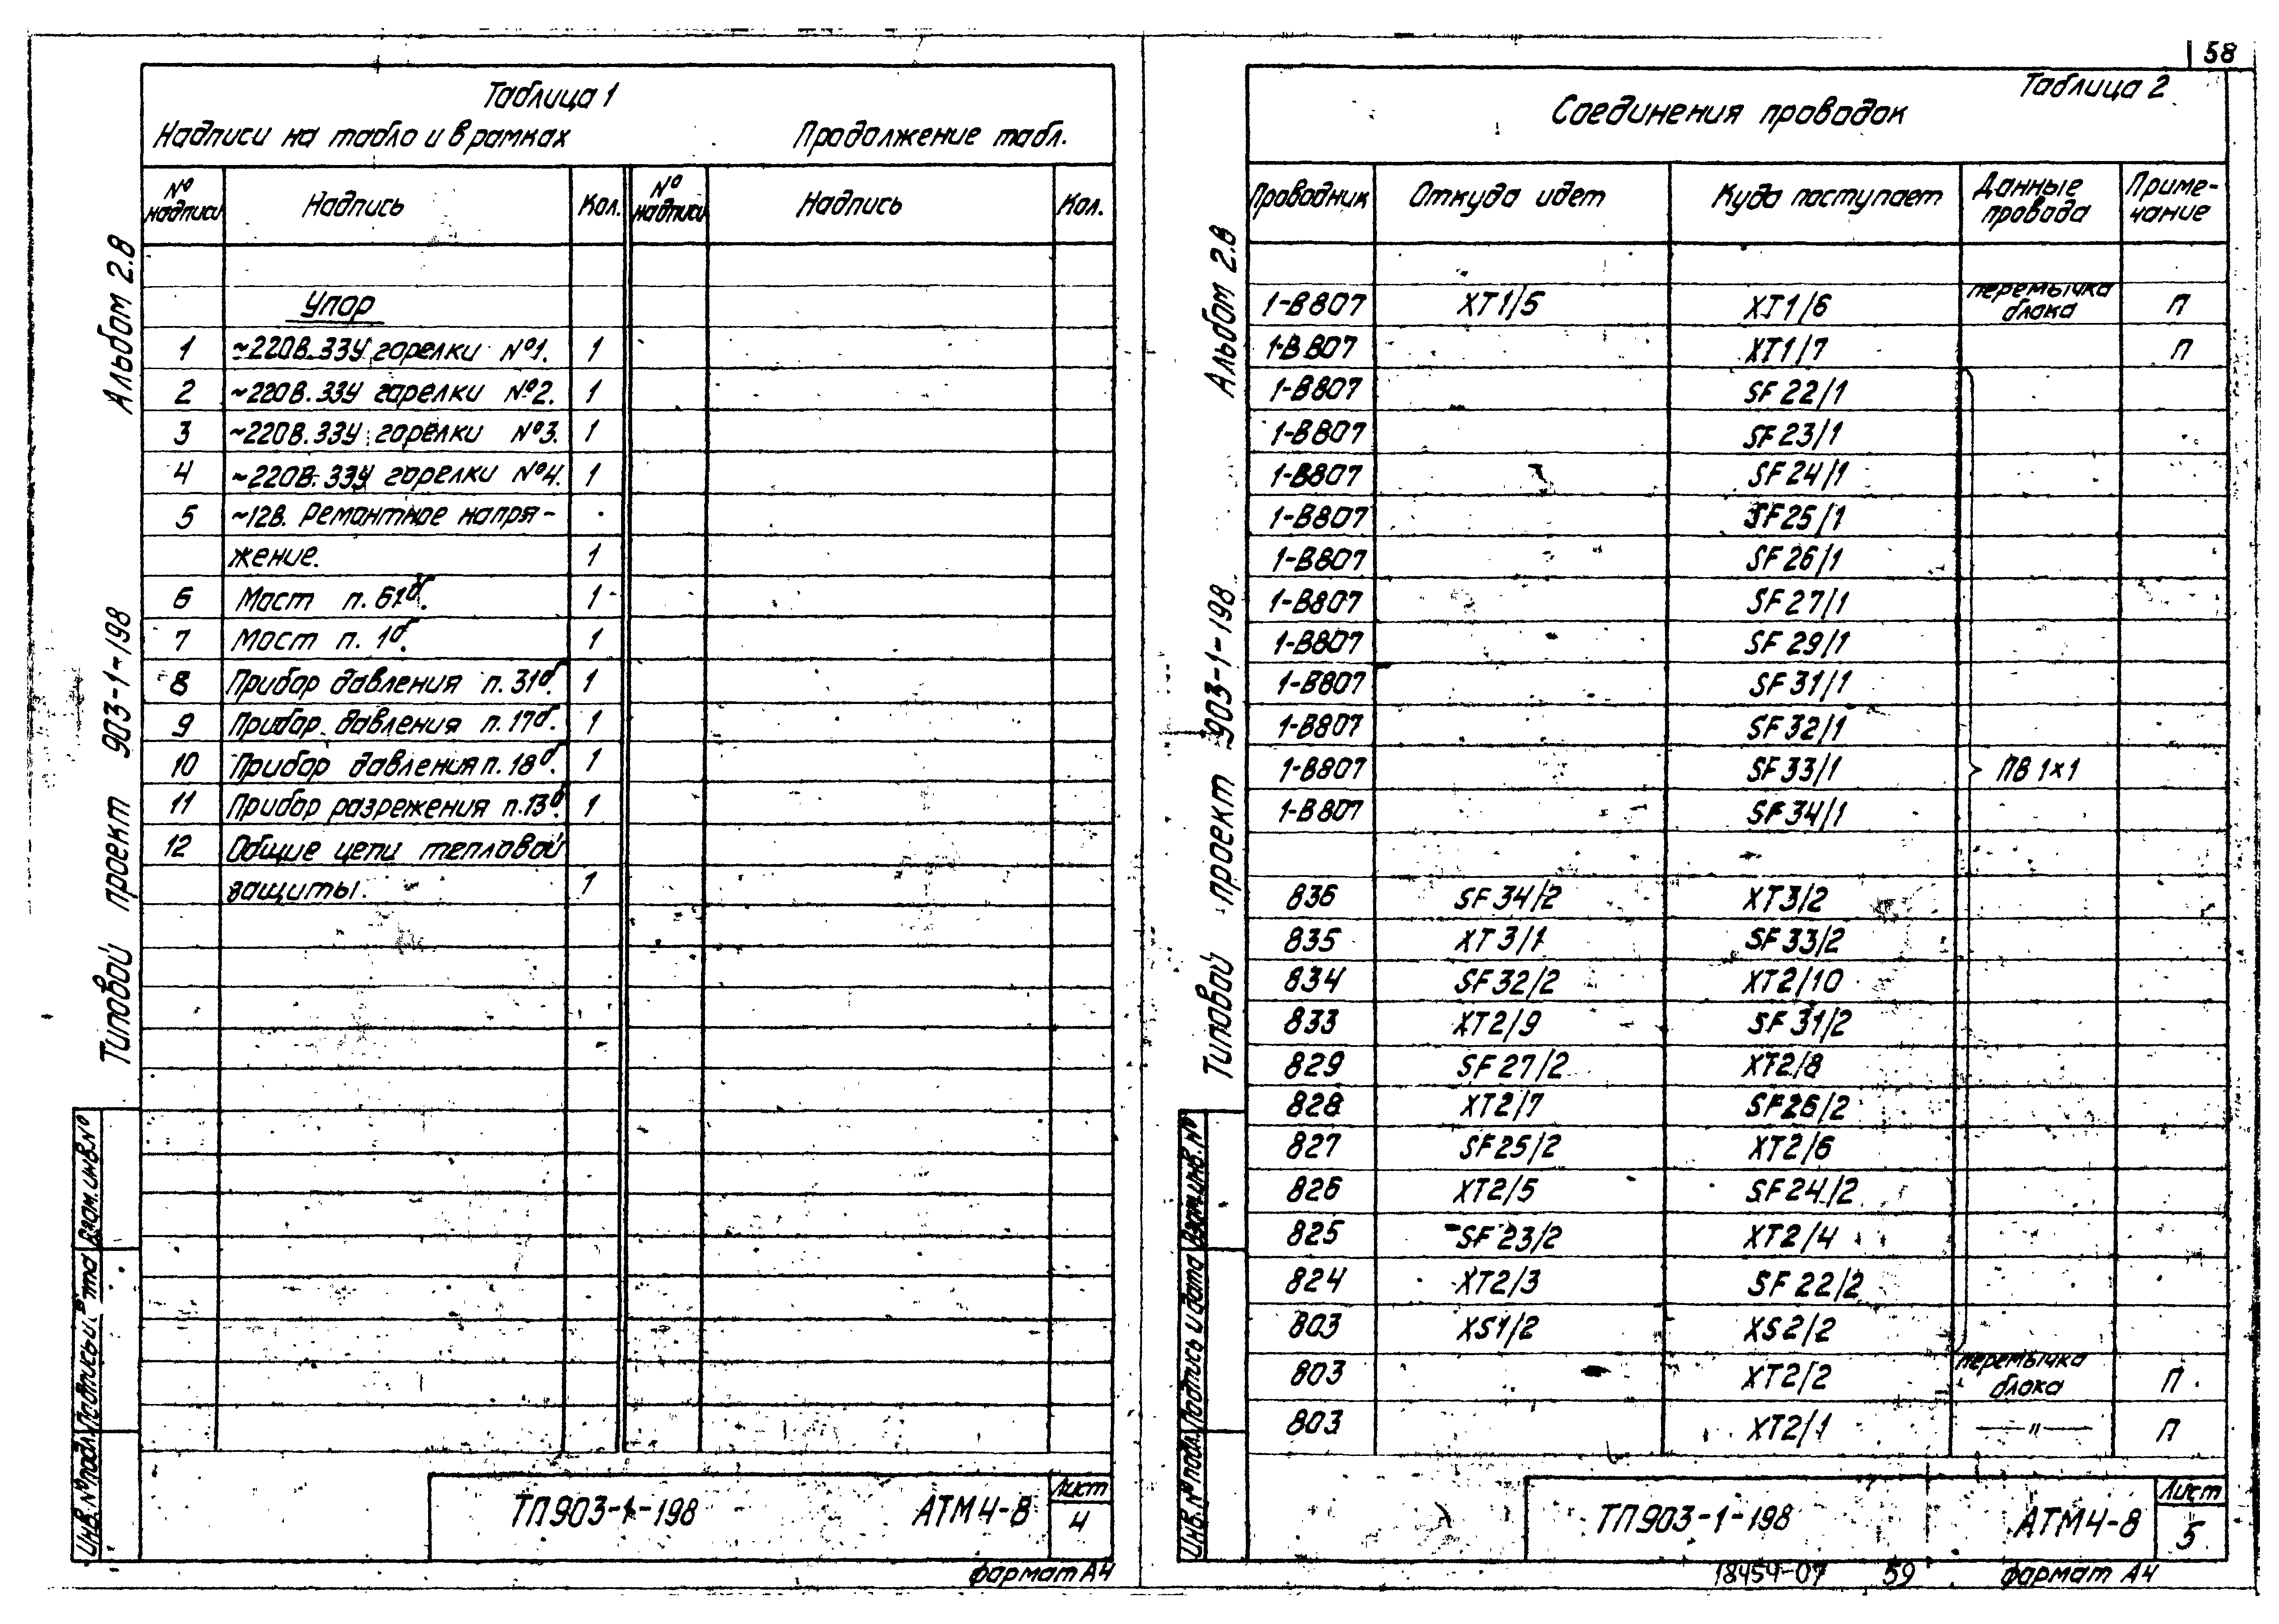 58
Таблица 1
Надписи на табло и в рамках Продолжение табл.
№ надписи Надпись Кол. № надписи Надпись Кол.
Упор
1 ~220В. ЗЗУ горелки №1. 1
2 ~220В. ЗЗУ горелки №2. 1
3 ~220В. ЗЗУ горелки №3. 1
4 ~220В. ЗЗУ горелки №4. 1
5 ~12В. Ремонтное напря-
жение. 1
6 Мост п. 61б. 1
7 Мост п. 1б. 1
8 Прибор давления п. 31б. 1
9 Прибор давления п. 17б. 1
10 Прибор давления п. 18б. 1
11 Прибор разрежения п. 13б. 1
12 Общие цепи тепловой
защиты. 1
Альбом 2.8
Типовой проект 903-1-198
Инв. № подл. Подпись и дата Взам. инв. №
ТП 903-1-198 АТМ4-8 Лист 4
формат А4
Таблица 2
Соединения проводок
Проводник Откуда идет Куда поступает Данные провода Приме-чание
1-В807 XT1/5 XT1/6 перемычка блока П
1-В807 XT1/7 П
1-В807 SF22/1
1-В807 SF23/1
1-В807 SF24/1
1-В807 SF25/1
1-В807 SF26/1
1-В807 SF27/1
1-В807 SF29/1
1-В807 SF31/1
1-В807 SF32/1
1-В807 SF33/1 ПВ 1х1
1-В807 SF34/1
836 SF34/2 XT3/2
835 XT3/1 SF33/2
834 SF32/2 XT2/10
833 XT2/9 SF31/2
829 SF27/2 XT2/8
828 XT2/7 SF26/2
827 SF25/2 XT2/6
826 XT2/5 SF24/2
825 SF23/2 XT2/4
824 XT2/3 SF22/2
803 XS1/2 XS2/2
803 XT2/2 перемычка блока П
803 XT2/1 —"— П
Альбом 2.8
Типовой проект 903-1-198
Инв. № подл. Подпись и дата Взам. инв. №
ТП 903-1-198 АТМ4-8 Лист 5
18454-07 59 формат А4